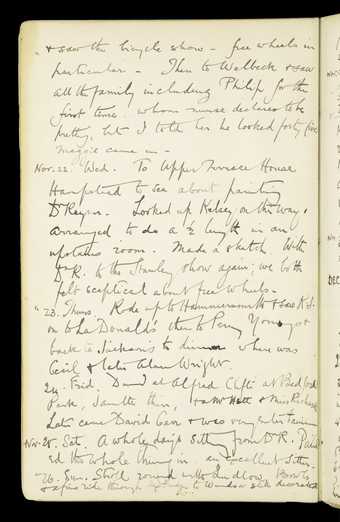 " + saw the bicycle show - free wheels in
particular - Then to Welbeck + saw
all the family including Philip for the
first time: whom nurse declares to be
pretty, but I told her he looked forty five
came in -
Nov. 22. Wed. To Upper Terrace House
Hampstead to see about painting
Dr Looked up Kelsey on the way &
arranged to do a ½ length in an
upstairs room. Made a sketch. With
Dr R. to the Stanley show again; we both
felt sceptical about free wheels.
" 23. Thurs. Rode up to Hammersmith & saw
on to La Donald's then to Young
back to Jackson's to dinner where was
Cecil & later Alan Wright.
24. Frid. at Alfred at Bedford
Park, Janette there, + Miss
Later came David + was very entertaining
Nov. 25. Sat. A whole day's sitting from Dr R. Paint
ed the whole thing in. an excellent sitter.
" 26. Sun. Stroll round with Ludlow.
through Windsor